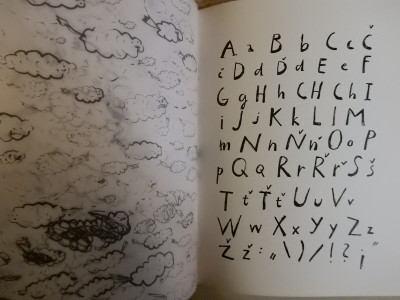 A a B b C c Č
č D d Ď d E e F
G g H h CH Ch I
i J j K k L l M
m N n Ň ň O o P
p Q q R r Ř ř S š
T t Ť ť U u V v
W w X x Y y Z z
Ž ž : „ \ ) / ! ? ¡ "